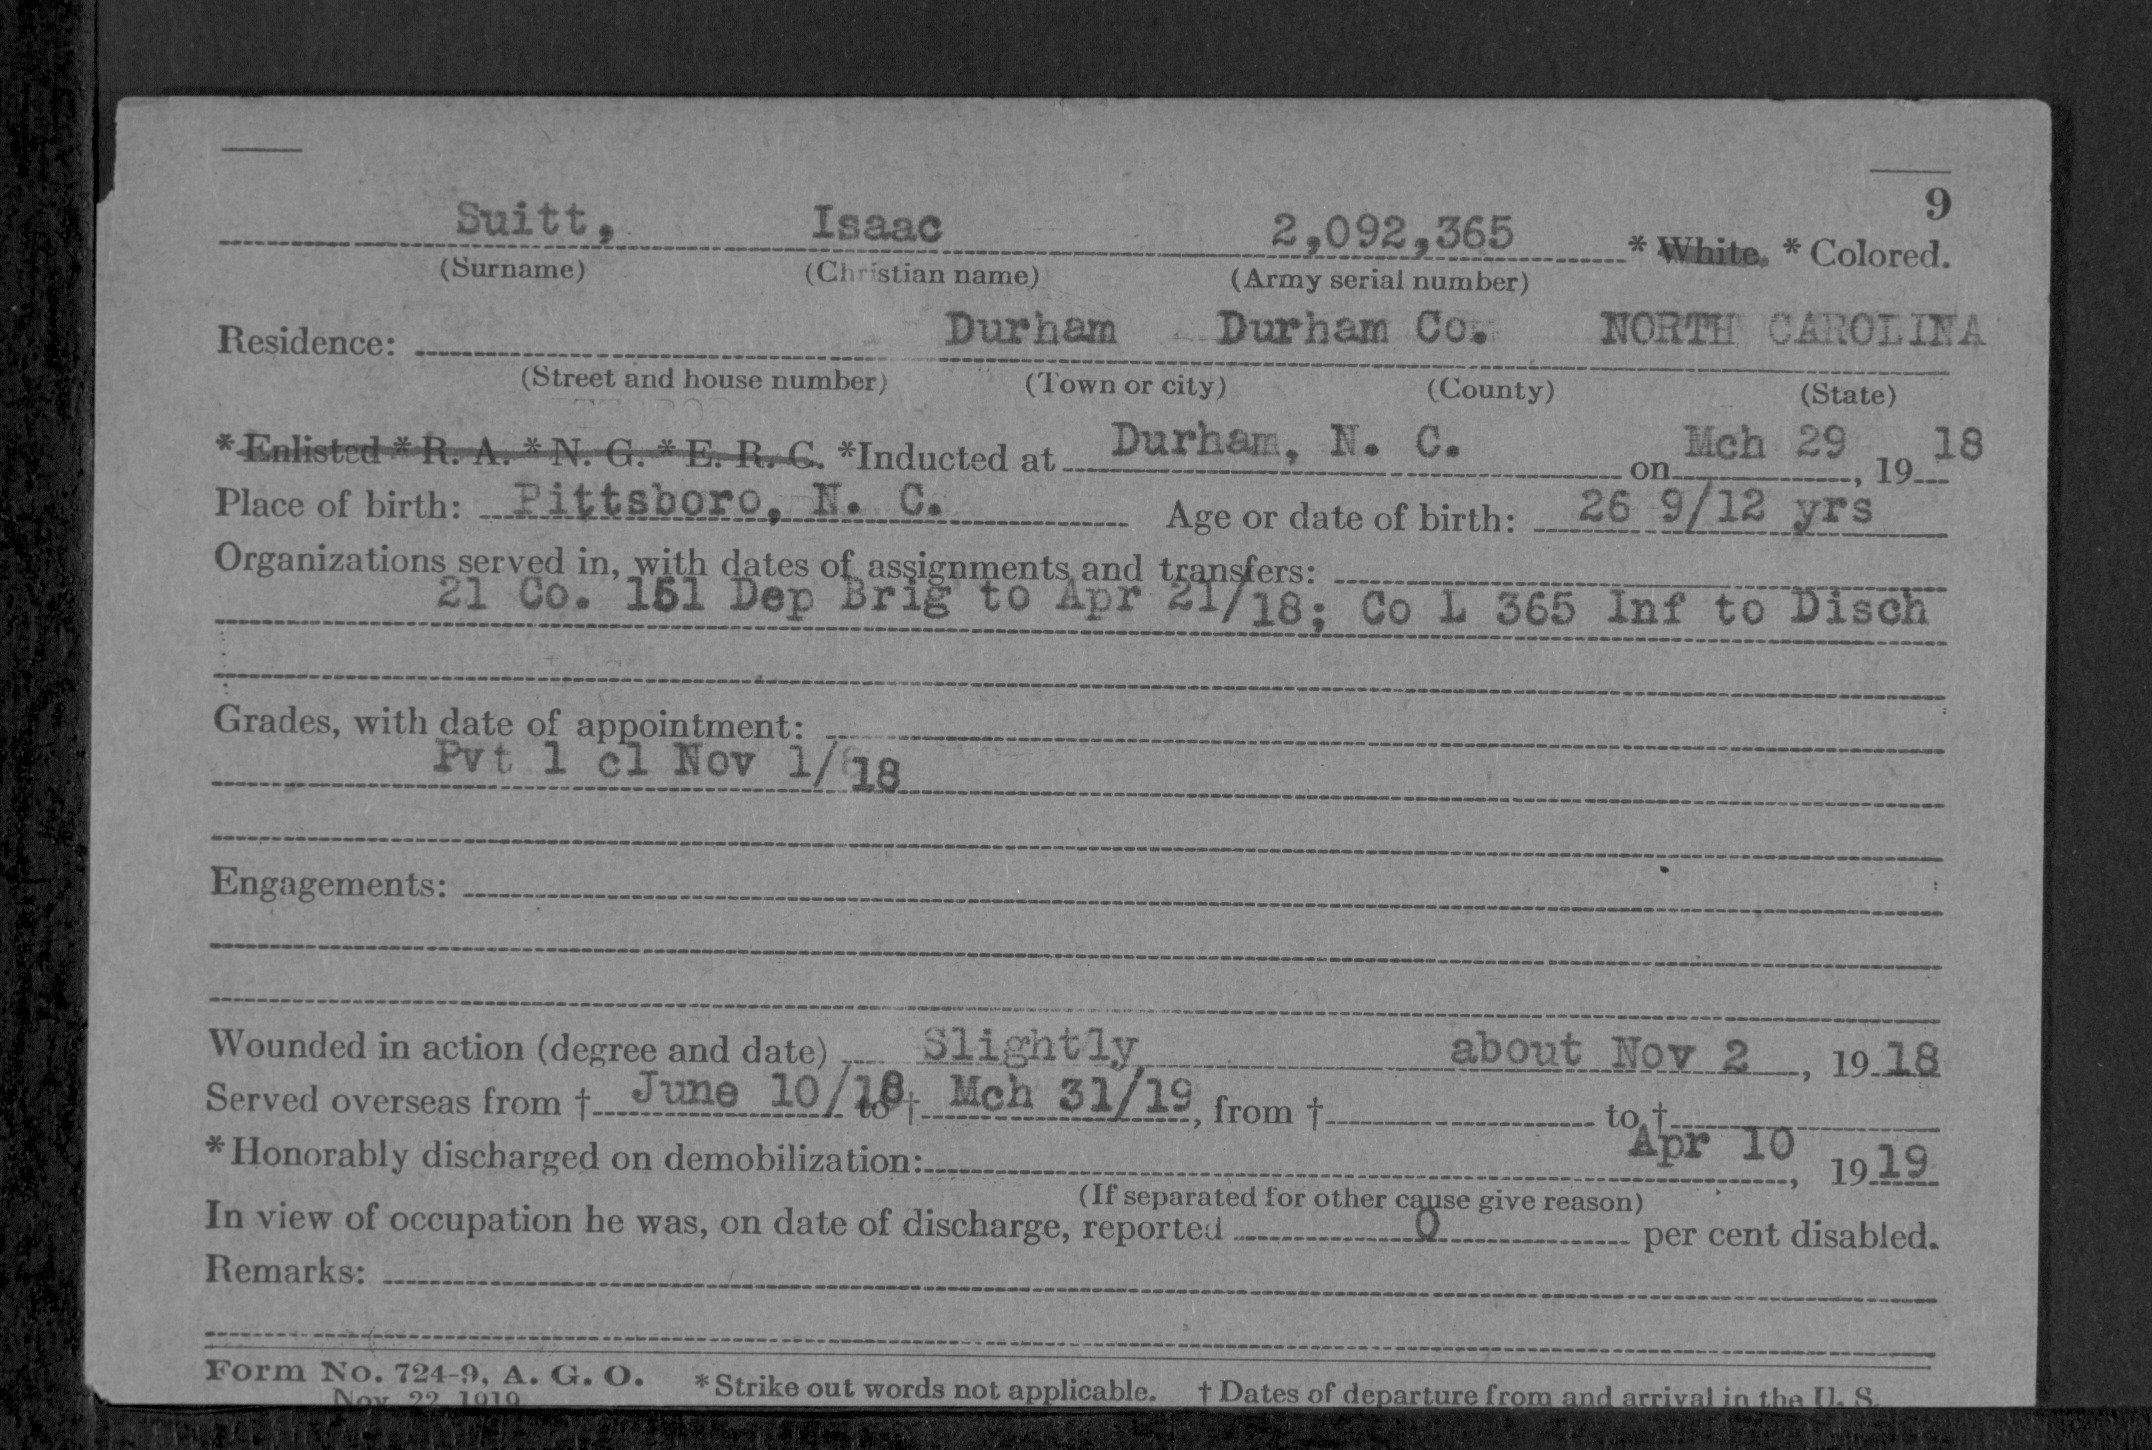 9
Suitt, Isaac 2,092,365 * White. * Colored.
(Surname) (Christian name) (Army serial number)
Residence: Durham Durham Co. NORTH CAROLINA
(Street and house number) (Town or city) (County) (State)
*Enlisted *R. A. *N. G. *E. R. C. *Inducted at Durham, N. C. on Mch 29, 19 18
Place of birth: Pittsboro, N. C. Age or date of birth: 26 9/12 yrs
Organizations served in, with dates of assignments and transfers:
21 Co. 151 Dep Brig to Apr 21/18; Co L 365 Inf to Disch
Grades, with date of appointment:
Pvt 1 cl Nov 1/18
Engagements:
Wounded in action (degree and date) Slightly about Nov 2, 19 18
Served overseas from † June 10/18 to † Mch 31/19, from † to †
*Honorably discharged on demobilization: Apr 10, 19 19
(If separated for other cause give reason)
In view of occupation he was, on date of discharge, reported 0 per cent disabled.
Remarks:
Form No. 724-9, A. G. O. *Strike out words not applicable. † Dates of departure from and arrival in the U. S.
Nov. 22, 1919